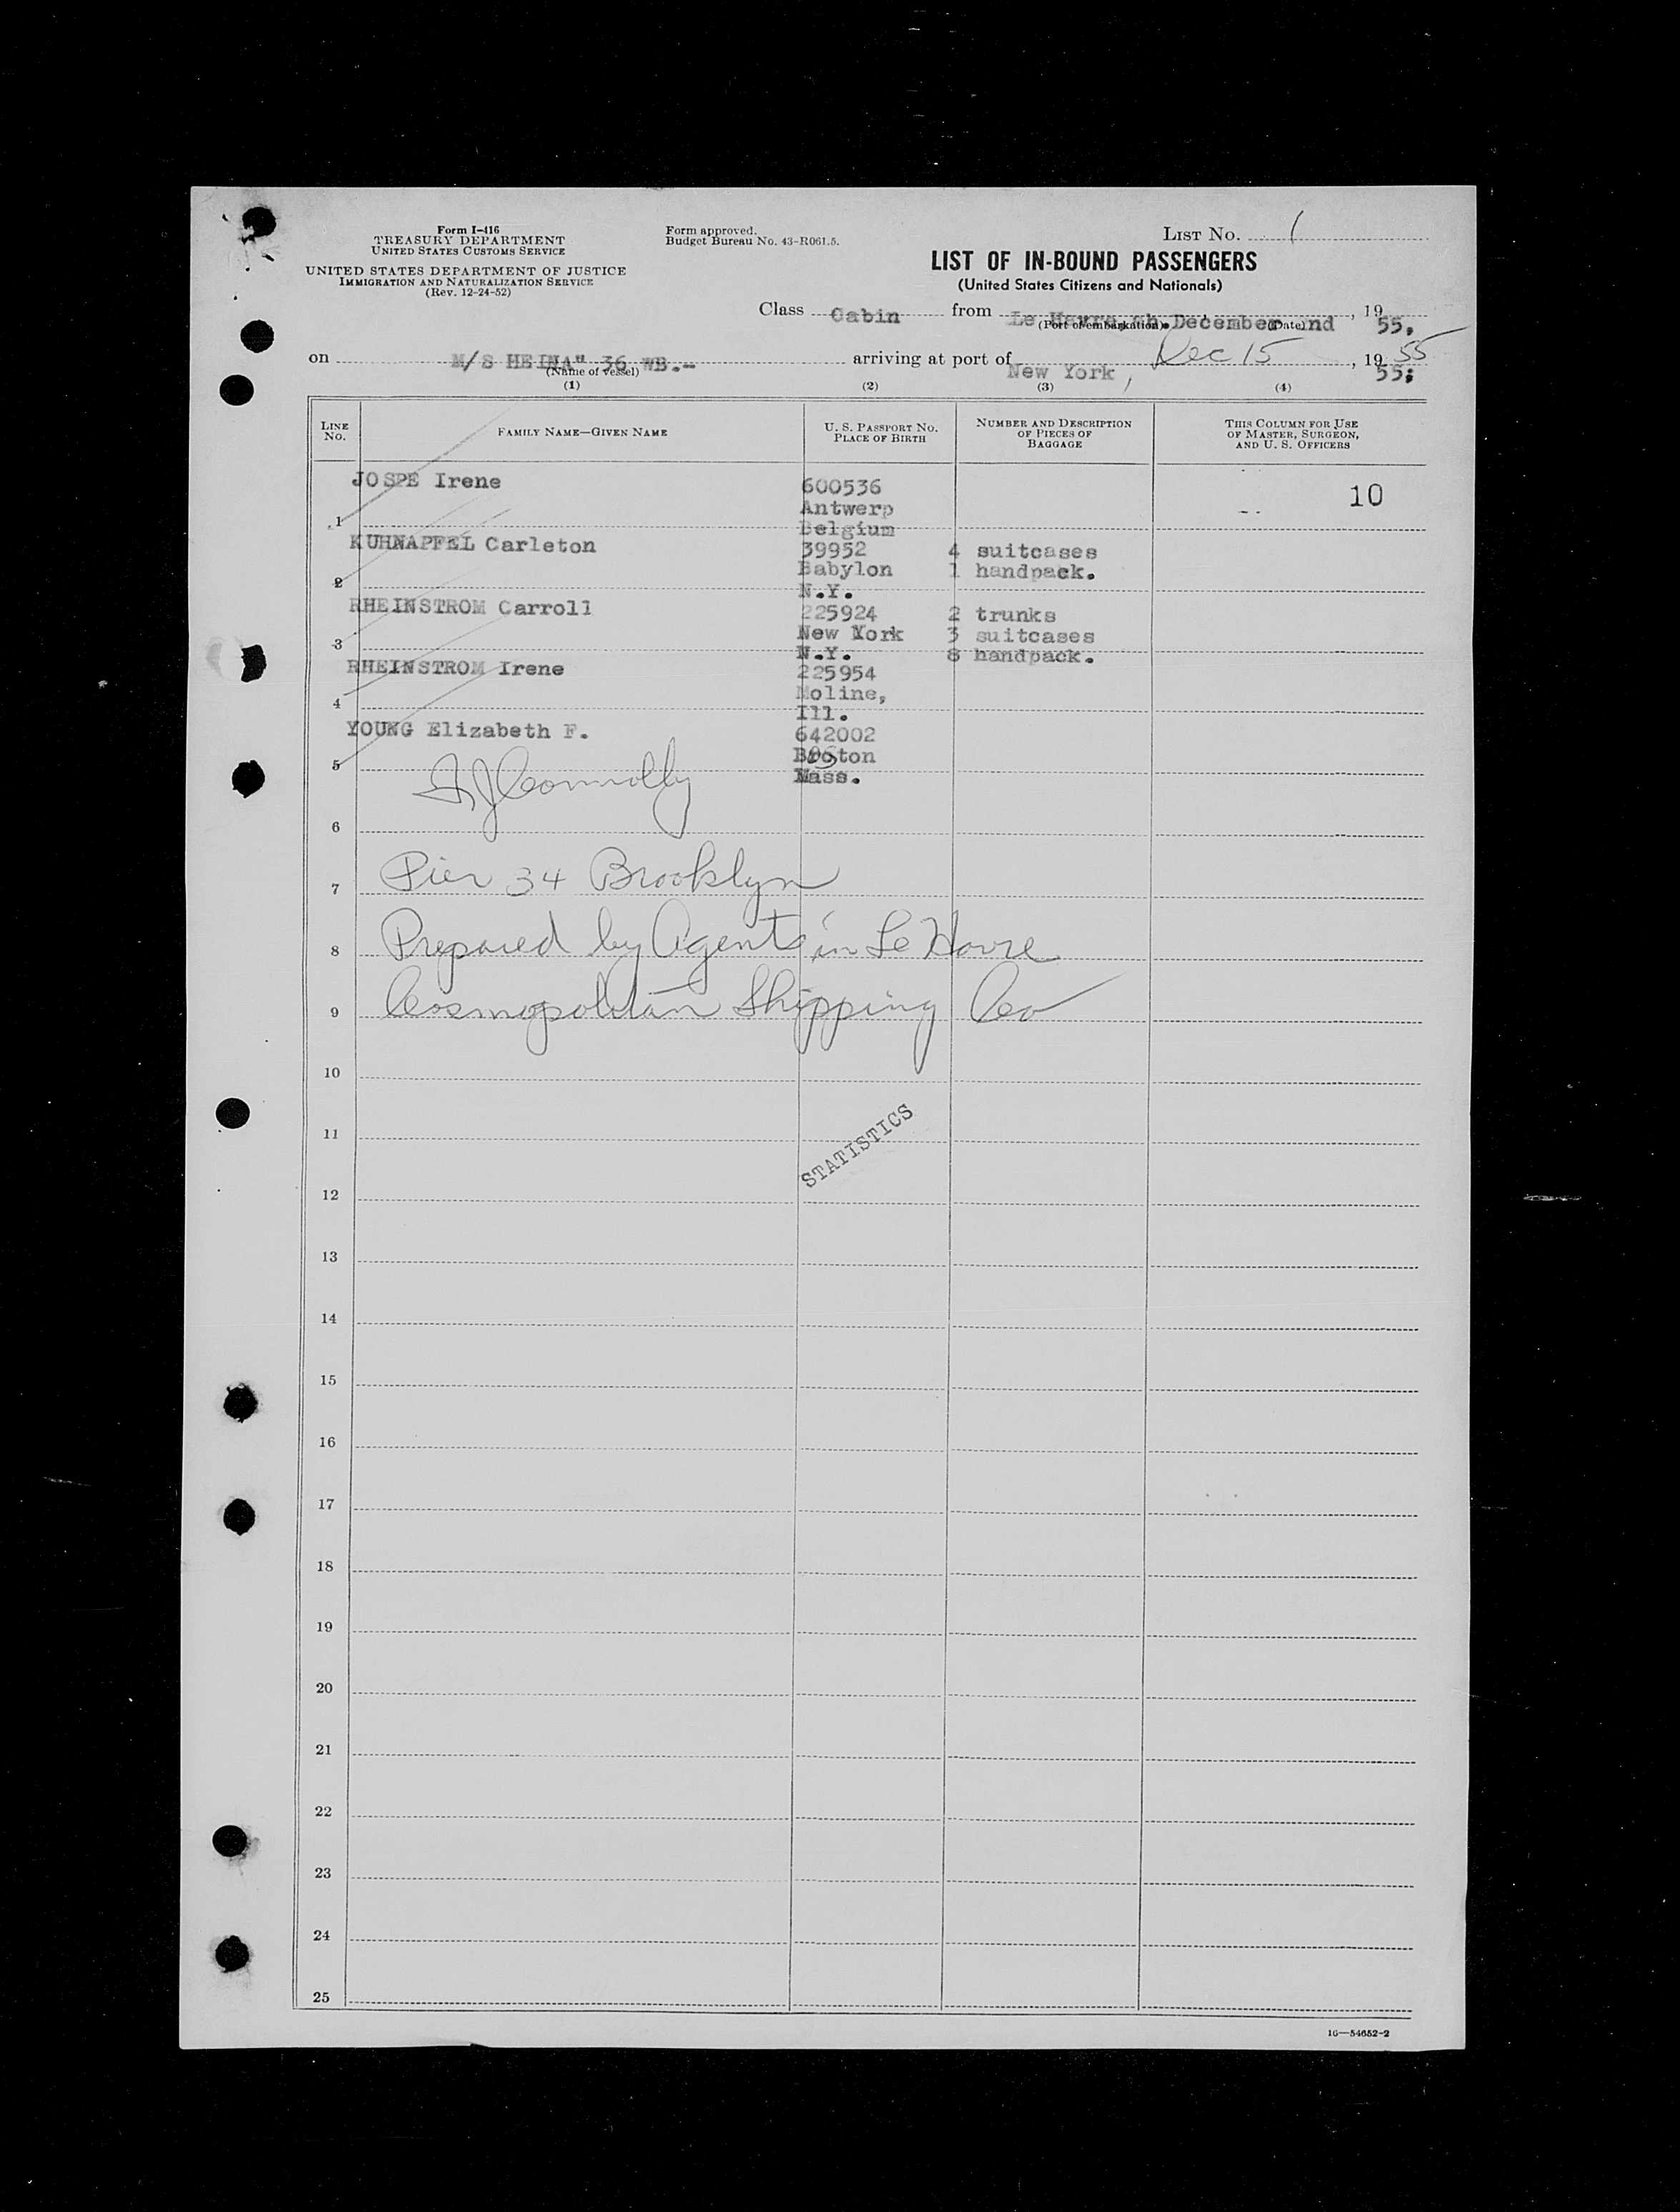 Form I-416
TREASURY DEPARTMENT
UNITED STATES CUSTOMS SERVICE
UNITED STATES DEPARTMENT OF JUSTICE
IMMIGRATION AND NATURALIZATION SERVICE
(Rev. 12-24-52)
Form approved.
Budget Bureau No. 43-R061.5.
LIST No. 1
LIST OF IN-BOUND PASSENGERS
(United States Citizens and Nationals)
Class Cabin from Le Havre, December nd, 19 55.
(Port of embarkation) (Date)
on M/S HEINA" 36 WB.- arriving at port of New York, Dec 15, 19 55
55;
(Name of vessel)
(1) (2) (3) (4)
LINE No. FAMILY NAME—GIVEN NAME U. S. PASSPORT No. PLACE OF BIRTH NUMBER AND DESCRIPTION OF PIECES OF BAGGAGE THIS COLUMN FOR USE OF MASTER, SURGEON, AND U. S. OFFICERS
JOSPE Irene 600536 10
Antwerp
1 Belgium
KUHNAPFEL Carleton 39952 4 suitcases
Babylon 1 handpack.
2 N.Y.
RHEINSTROM Carroll 225924 2 trunks
New York 3 suitcases
3 N.Y. 8 handpack.
RHEINSTROM Irene 225954
Moline,
4 Ill.
YOUNG Elizabeth F. 642002
5 Boston
Mass.
Connolly
6
7 Pier 34 Brooklyn
8 Prepared by Agents in Le Havre
9 Cosmopolitan Shipping Co
10
11
STATISTICS
12
13
14
15
16
17
18
19
20
21
22
23
24
25
16—54652-2